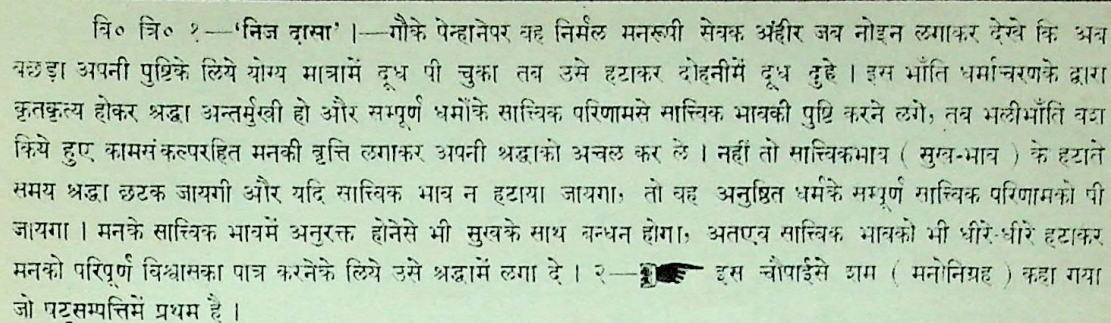 वि० त्रि० १—‘निज दासा’ ।—गौके पेन्हानेपर वह निर्मल मनरूपी सेवक अहीर जब नोइन लगाकर देखे कि अब
बछड़ा अपनी पुष्टिके लिये योग्य मात्रामें दूध पी चुका तब उसे हटाकर दोहनीमें दूध दुहे । इस भाँति धर्माचरणके द्वारा
कृतकृत्य होकर श्रद्धा अन्तर्मुखी हो और सम्पूर्ण धर्मोंके सात्त्विक परिणामसे सात्त्विक भावकी पुष्टि करने लगे, तब भलीभाँति वश
किये हुए कामसंकल्परहित मनकी वृत्ति लगाकर अपनी श्रद्धाको अचल कर ले । नहीं तो सात्त्विकभाव ( सुख-भाव ) के हटाते
समय श्रद्धा छटक जायगी और यदि सात्त्विक भाव न हटाया जायगा, तो वह अनुष्ठित धर्मके सम्पूर्ण सात्त्विक परिणामको पी
जायगा । मनके सात्त्विक भावमें अनुरक्त होनेसे भी सुखके साथ बन्धन होगा, अतएव सात्त्विक भावको भी धीरे-धीरे हटाकर
मनको परिपूर्ण विश्वासका पात्र करनेके लिये उसे श्रद्धामें लगा दे । २—☛ इस चौपाईसे शम ( मनोनिग्रह ) कहा गया
जो षट्सम्पत्तिमें प्रथम है ।